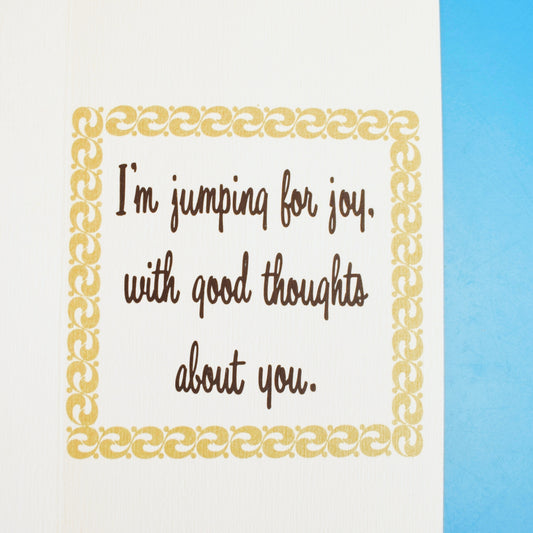 I'm jumping for joy,
with good thoughts
about you.